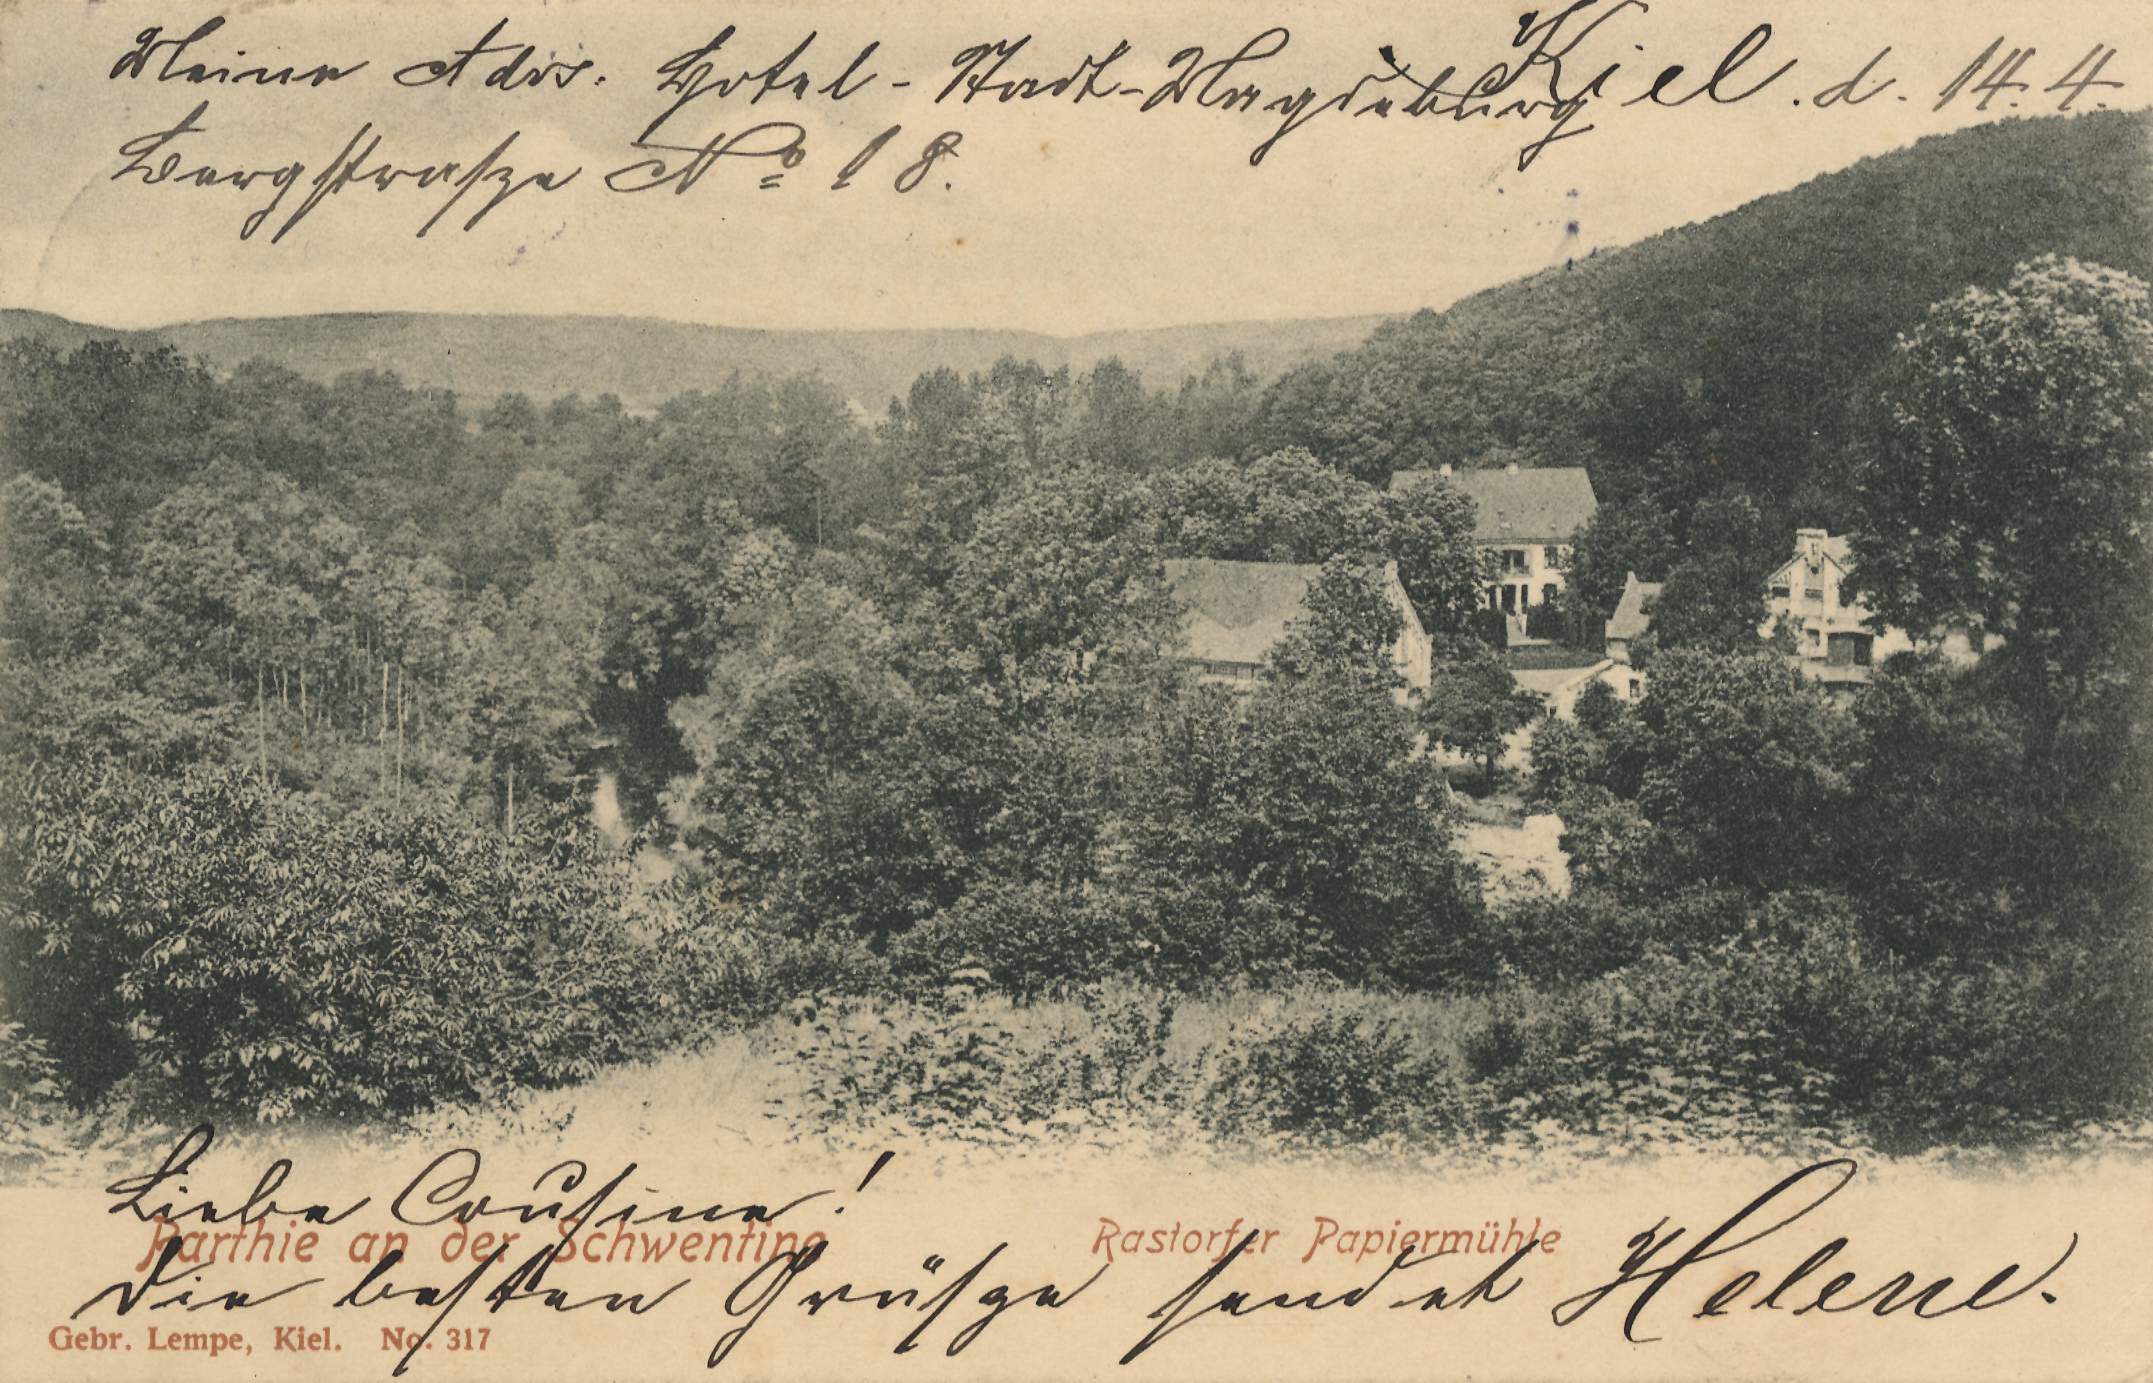 Meine Adrs. Hotel-Stadt-Magdeburg Kiel. d. 14. 4.
Bergstrasze No 18.
Liebe Cousine!
Parthie an der Schwentine Rastorfer Papiermühle
Die besten Grüsze sendet Helene.
Gebr. Lempe, Kiel. No. 317